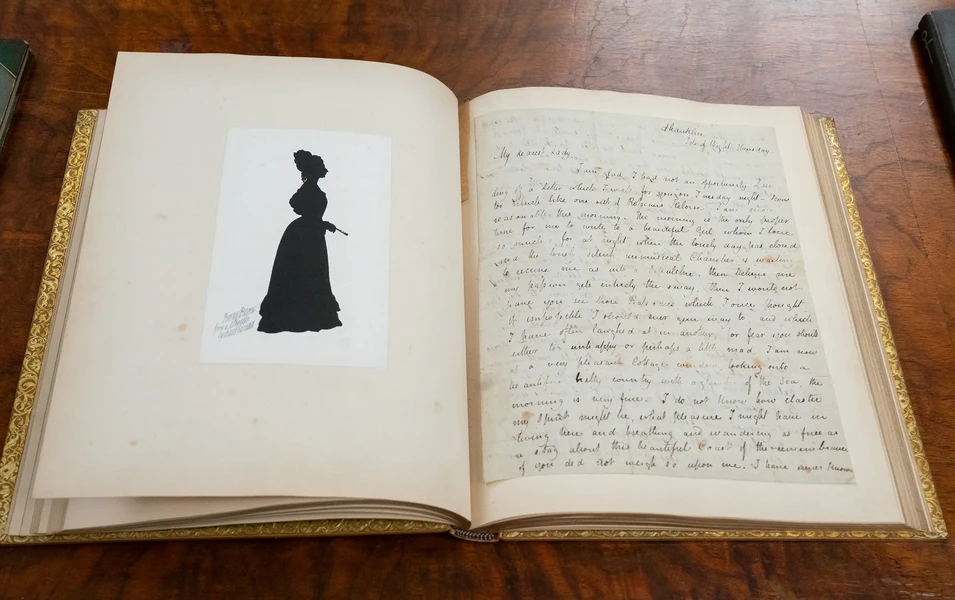 Shanklin
Isle of Wight, Thursday
My dearest Lady
I am glad I had not an opportunity
ding off a Letter which I wrote for you on Tuesday night - 'twas
too much like one out of Heloise. I am more
reasonable this morning. The morning is the only proper
time for me to write to a beautiful Girl whom I love
so much: for at night, when the lonely day has closed
and the lonely silent unmusical Chamber is waiting
to receive me as into a Sepulchre, then believe me
my passion gets entirely the sway, then I would not
have you see those Rapsodies which I once thought
it impossible I should ever give way to and which
I have often laughed at in another, for fear you should
either unhappy or perhaps a little mad. I am now
at a very pleasant Cottage window, looking onto a
beautiful hilly country with a glimpse of the Sea, the
morning is very fine. I do not know how elastic
my spirit might be, what pleasure I might have in
living here and breathing and wandering as free as
a stag about this beautiful Coast if the remembrance
of you did not weigh so upon me. I have never known